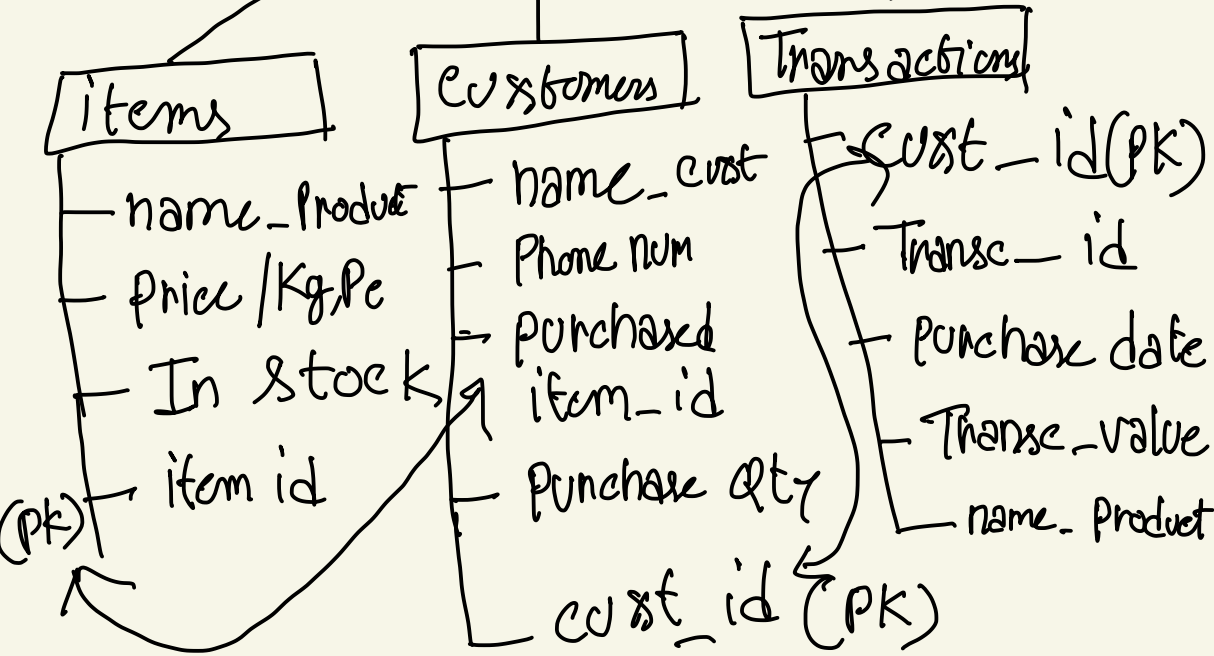 items
name_Product
Price /Kg,Pe
In stock
item id
(PK)
Customers
name_cust
Phone num
purchased
item_id
Purchase Qty
cust_id (PK)
Transactions
cust_id(PK)
Transc_id
Purchase date
Transc_value
name_Product